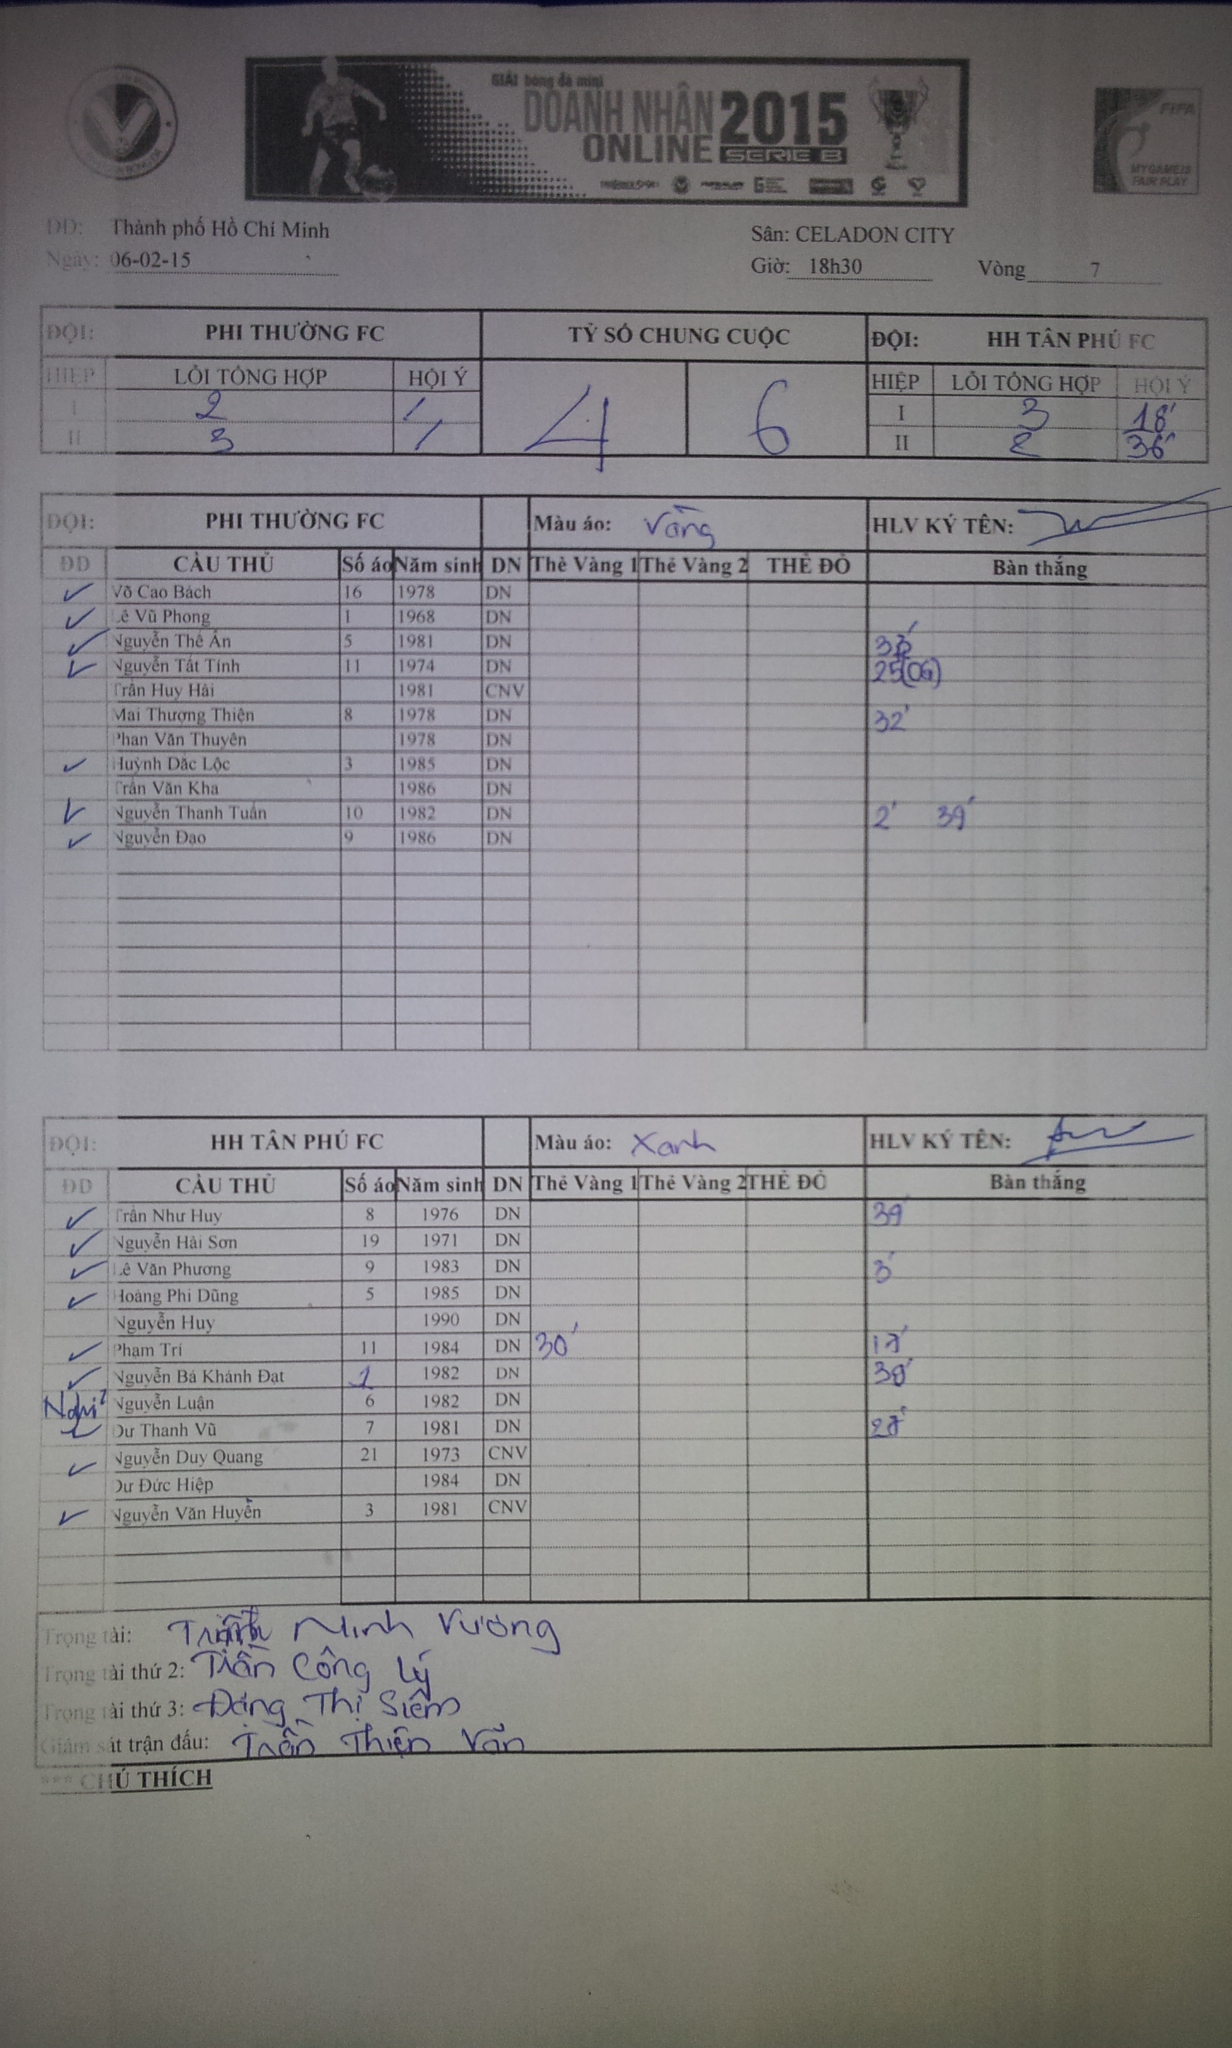 GIẢI bóng đá mini
DOANH NHÂN 2015
ONLINE SERIE B
FIFA
MY GAME IS
FAIR PLAY
DD: Thành phố Hồ Chí Minh
Sân: CELADON CITY
Ngày: 06-02-15
Giờ: 18h30 Vòng 7
ĐỘI: PHI THƯỜNG FC TỶ SỐ CHUNG CUỘC ĐỘI: HH TÂN PHÚ FC
HIỆP LỖI TỔNG HỢP HỘI Ý 4 6 HIỆP LỖI TỔNG HỢP HỘI Ý
I 2 / I 3 18'
II 3 / II 2 36'
ĐỘI: PHI THƯỜNG FC Màu áo: Vàng HLV KÝ TÊN:
ĐD CẦU THỦ Số áo Năm sinh DN Thẻ Vàng 1 Thẻ Vàng 2 THẺ ĐỎ Bàn thắng
✓ Võ Cao Bách 16 1978 DN
✓ Lê Vũ Phong 1 1968 DN
✓ Nguyễn Thế Ân 5 1981 DN
✓ Nguyễn Tất Tính 11 1974 DN 25(OG)
Trần Huy Hải 1981 CNV
Mai Thượng Thiện 8 1978 DN 32'
Phan Văn Thuyên 1978 DN
✓ Huỳnh Đắc Lộc 3 1985 DN
Trần Văn Kha 1986 DN
✓ Nguyễn Thanh Tuấn 10 1982 DN 2' 39'
✓ Nguyễn Đạo 9 1986 DN
ĐỘI: HH TÂN PHÚ FC Màu áo: Xanh HLV KÝ TÊN:
ĐD CẦU THỦ Số áo Năm sinh DN Thẻ Vàng 1 Thẻ Vàng 2 THẺ ĐỎ Bàn thắng
✓ Trần Như Huy 8 1976 DN 39'
✓ Nguyễn Hải Sơn 19 1971 DN
✓ Lê Văn Phương 9 1983 DN 3'
✓ Hoàng Phi Dũng 5 1985 DN
Nguyễn Huy 1990 DN
✓ Phạm Trí 11 1984 DN 30' 17'
✓ Nguyễn Bá Khánh Đạt 1 1982 DN
Nghỉ Nguyễn Luận 6 1982 DN
✓ Dư Thanh Vũ 7 1981 DN 27'
✓ Nguyễn Duy Quang 21 1973 CNV
Dư Đức Hiệp 1984 DN
✓ Nguyễn Văn Huyền 3 1981 CNV
Trọng tài: Minh Vương
Trọng tài thứ 2: Trần Công Lý
Trọng tài thứ 3: Đặng Thị Siêm
Giám sát trận đấu: Trần Thiện Văn
*** CHÚ THÍCH